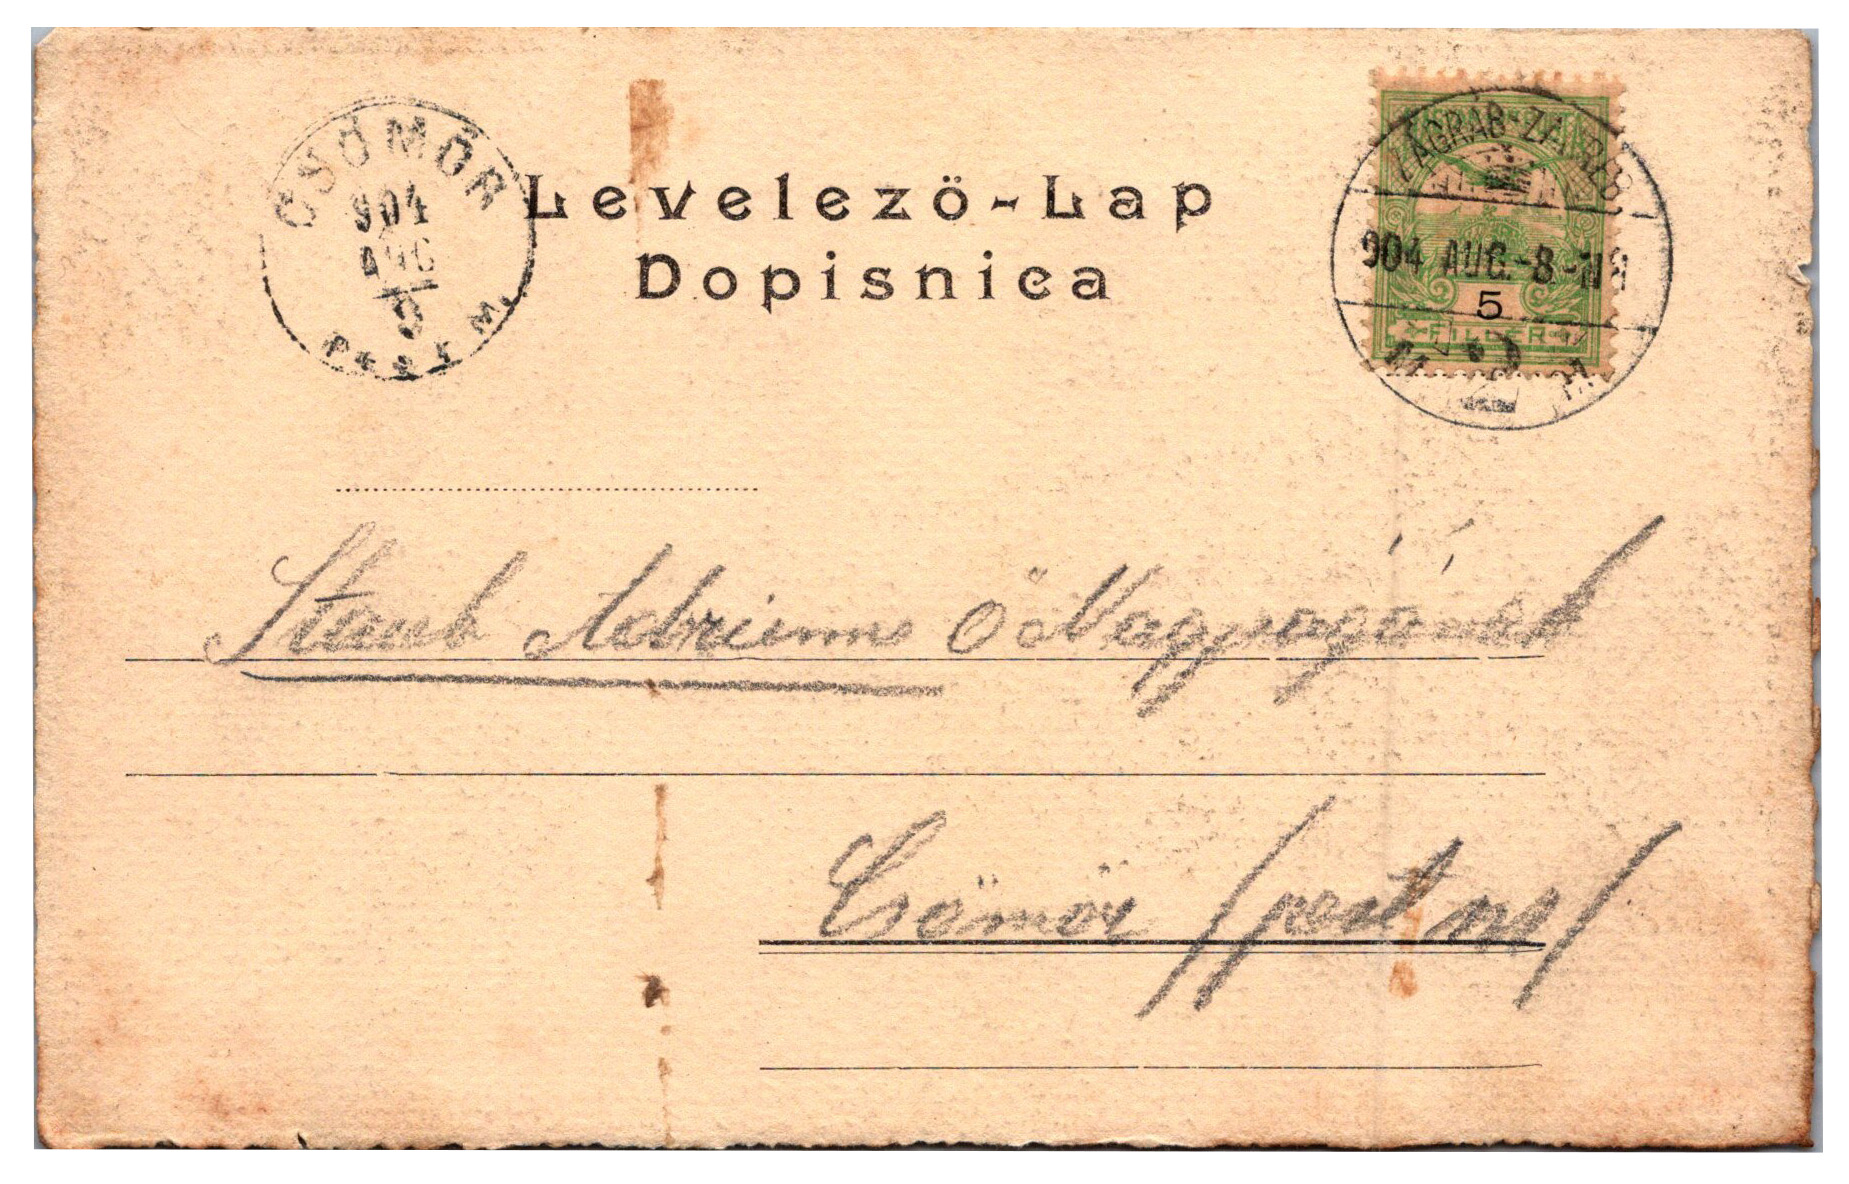 CSÖMÖR
904
AUG
9
PEST M.
Levelező-Lap
Dopisnica
ZÁGRÁB-ZAGREB
904 AUG.-8.-N
5
FILLÉR
Staub Adrienne Ő Nagyságának
Csömör /pest m/